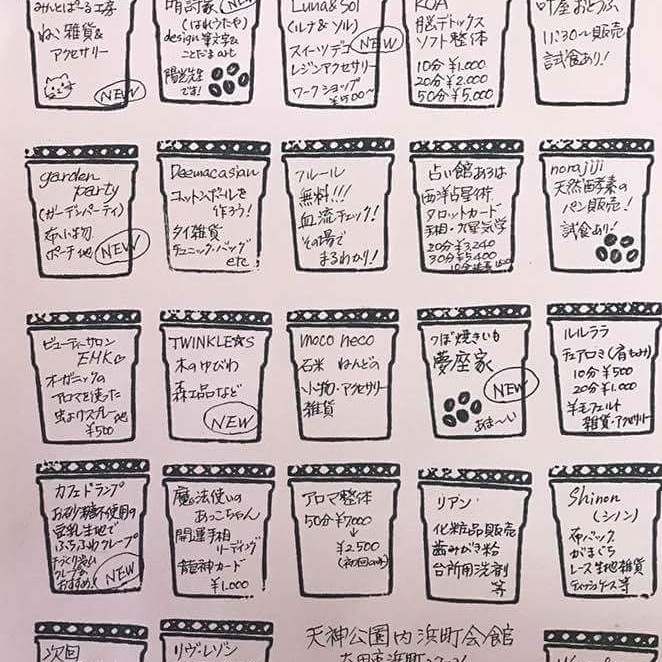 みんとぱーる工房
ねこ雑貨&
アクセサリー
NEW
晴詩家
(はれうたや)
design筆文字&
ことだま art
陽光先生
です!
NEW
Luna&Sol
(ルナ&ソル)
スイーツデコ
NEW
レジンアクセサリー
ワークショップ
¥500~
KOA
脳デトックス
ソフト整体
10分¥1.000
20分¥2.000
50分¥5.000
叶屋おとうふ
11:30~販売
試食あり!
garden
party
(ガーデンパーティ)
布小物
ポーチ他
NEW
Deemacasian
コットンボールを
作ろう!
タイ雑貨
チュニック・バッグ
etc
フルール
無料!!!
血流チェック!
その場で
まるわかり!
占い館あろは
西洋占星術
タロットカード
手相・九星気学
20分¥3,240
30分¥5,400
norajiji
天然酵素の
パン販売!
試食あり!
ビューティーサロン
EMK
オーガニックの
アロマを使った
虫よけスプレー他
¥500
TWINKLE☆S
木のゆびわ
森工品など
NEW
moco neco
石米 ねんどの
小物・アクセサリー
雑貨
つぼ焼きいも
夢座家
NEW
あま~い
ルルララ
チェアロミ(肩もみ)
10分¥500
20分¥1.000
羊毛フェルト
雑貨・アクセサリー
カフェドランプ
お砂糖不使用の
豆乳生地で
ふちふわクレープ
おすすめ!
NEW
魔法使いの
あっこちゃん
開運手相
リーディング
龍神カード
¥1.000
アロマ整体
50分¥7000
↓
¥2.500
(初回のみ)
リアン
化粧品販売
歯みがき粉
台所用洗剤
等
Shinon
(シノン)
布バッグ
がまぐち
レース生地雑貨
ティッシュケース等
次回
リヴ・レゾン
天神公園内浜町会館
太田市浜町